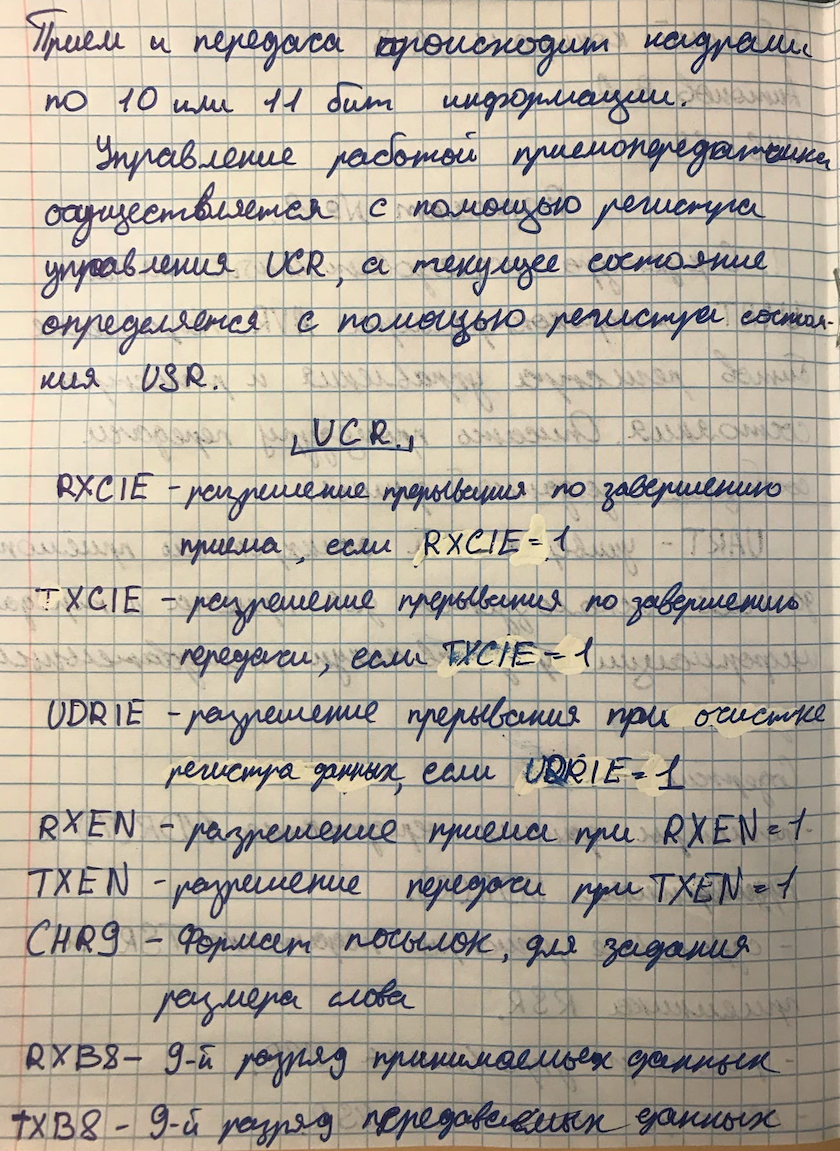 Прием и передача происходит кадрами
по 10 или 11 бит информации.
Управление работой приемопередатчика
осуществляется с помощью регистра
управления UCR, а текущее состояние
определяется с помощью регистра состоя-
ния USR.
UCR.
RXCIE - разрешение прерывания по завершению
приема, если RXCIE = 1
TXCIE - разрешение прерывания по завершению
передачи, если TXCIE = 1
UDRIE - разрешение прерывания при очистке
регистра данных, если UDRIE = 1
RXEN - разрешение приема при RXEN = 1
TXEN - разрешение передачи при TXEN = 1
CHR9 - Формат посылок, для задания
размера слова
RXB8 - 9-й разряд принимаемых данных
TXB8 - 9-й разряд передаваемых данных